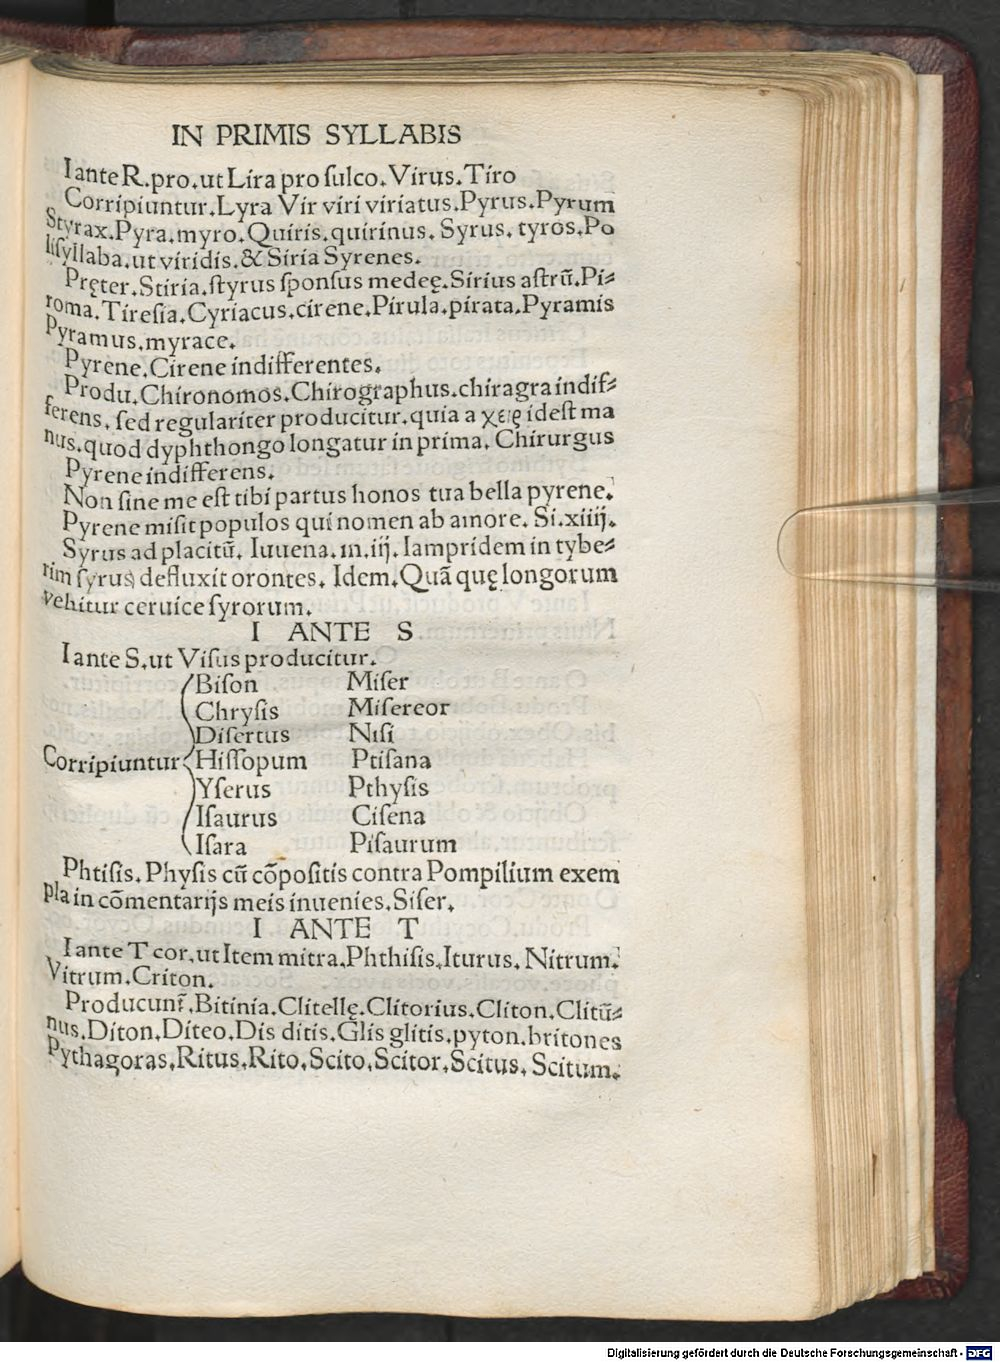 IN PRIMIS SYLLABIS
I ante R.pro.ut Lira pro ſulco.Virus.Tiro
Corripiuntur.Lyra Vir viri viriatus.Pyrus.Pyrum
Styrax.Pyra.myro.Quiris.quirinus. Syrus. tyros.Po
liſyllaba.ut viridis.& Siria Syrenes.
Pręter.Stiria.ſtyrus ſponſus medeę.Sirius aſtrũ.Pi⸗
roma.Tireſia.Cyriacus.cirene.Pirula.pirata.Pyramis
Pyramus.myrace.
Pyrene.Cirene indifferentes.
Produ.Chironomos.Chirographus.chiragra indif⸗
ferens. ſed regulariter producitur.quia a χειρ ideſt ma
nus.quod dyphthongo longatur in prima. Chirurgus
Pyrene indifferens.
Non ſine me eſt tibi partus honos tua bella pyrene.
Pyrene miſit populos qui nomen ab amore. Si.xiiij.
Syrus ad placitũ. Iuuena.in.iij. Iampridem in tybe⸗
rim ſyrus defluxit orontes. Idem.Quã quę longorum
vehitur ceruice ſyrorum.
I ANTE S
I ante S.ut Viſus producitur.
Biſon Miſer
Chryſis Miſereor
Diſertus Niſi
Corripiuntur Hiſſopum Ptiſana
Yſerus Pthyſis
Iſaurus Ciſena
Iſara Piſaurum
Phtiſis.Phyſis cũ cõpoſitis contra Pompilium exem
pla in cõmentarijs meis inuenies.Siſer.
I ANTE T
I ante T cor.ut Item mitra.Phthiſis.Iturus. Nitrum.
Vitrum.Criton.
Producunt᷑.Bitinia.Clitellę.Clitorius.Cliton.Clitũ⸗
nus.Diton.Diteo.Dis ditis.Glis glitis.pyton.britones
Pythagoras.Ritus.Rito.Scito.Scitor.Scitus. Scitum.
Digitalisierung gefördert durch die Deutsche Forschungsgemeinschaft - DFG